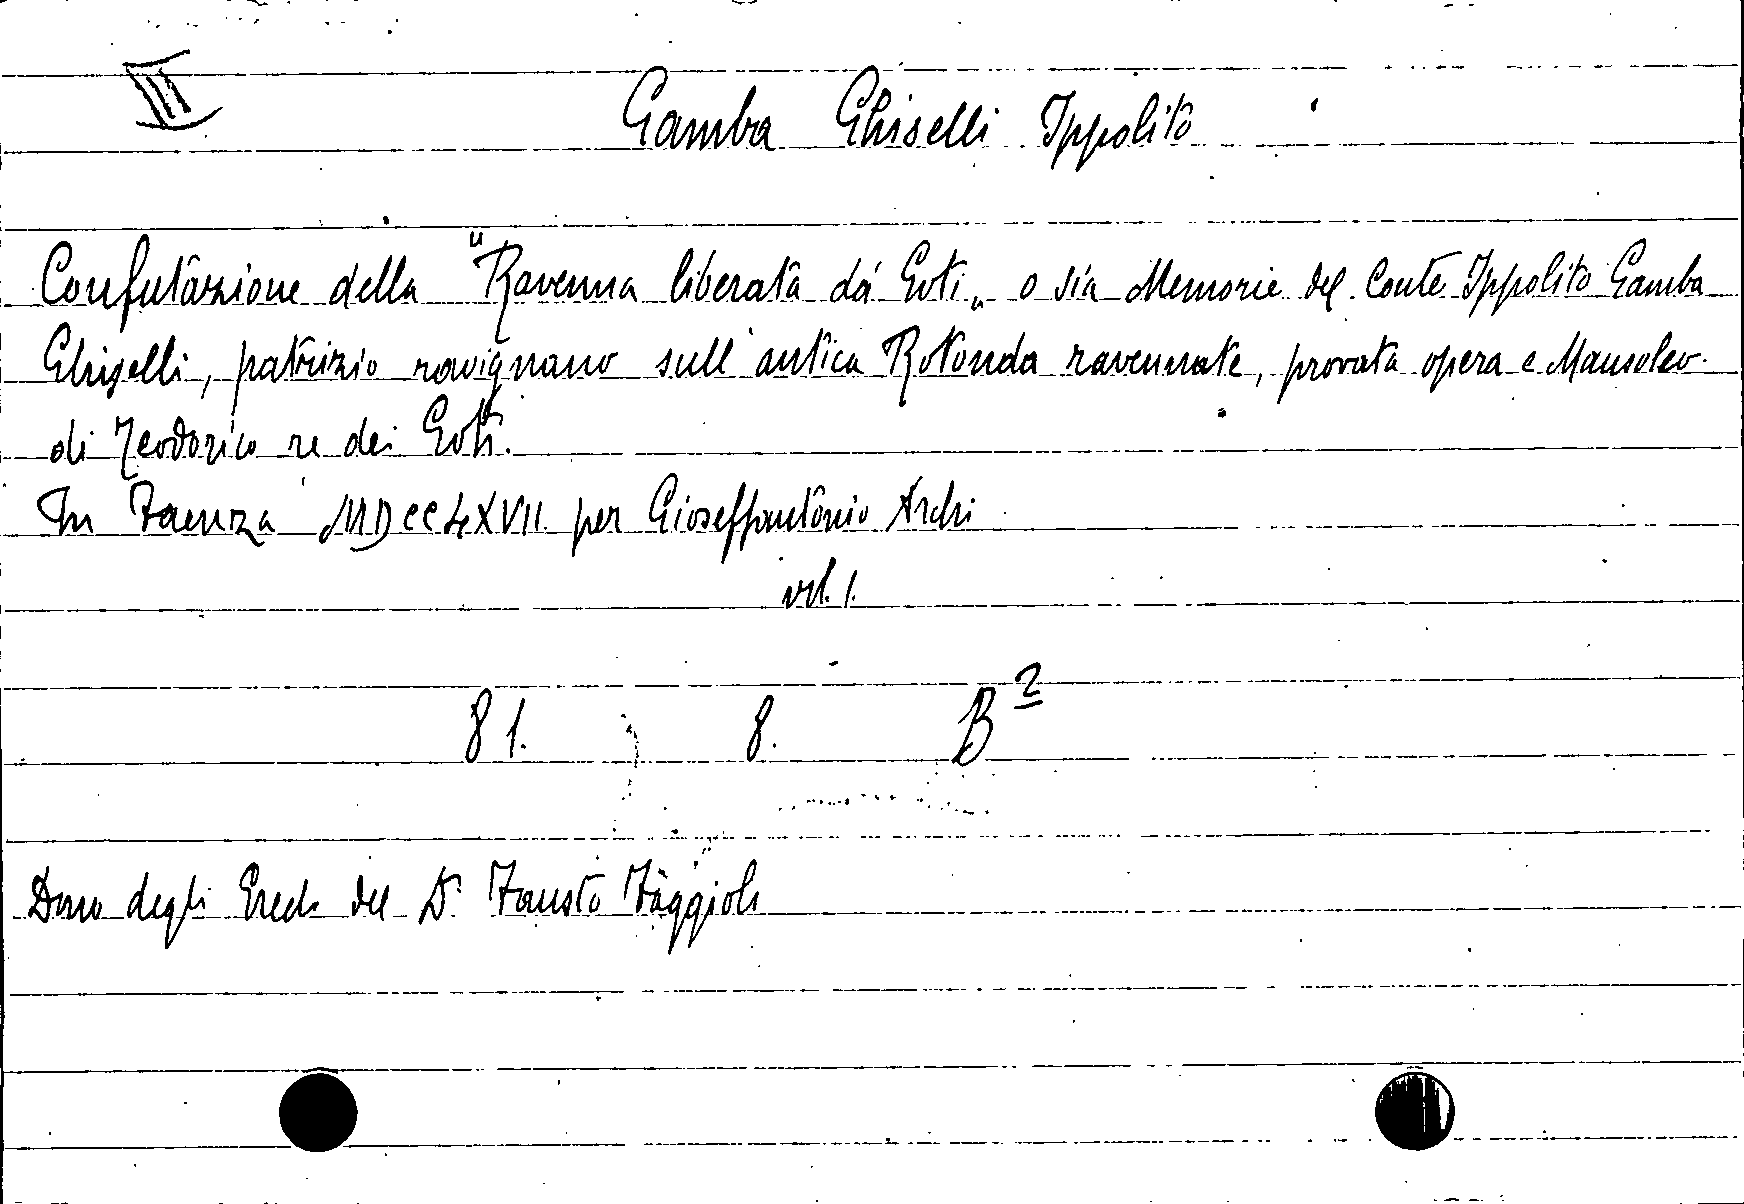 III
Gamba Ghiselli Ippolito
Confutazione della "Ravenna liberata dá Goti„ o sia Memorie del Conte Ippolito Gamba
Ghiselli, patrizio ravignano sull'antica Rotonda ravennate, provata opera e Mausoleo
di Teodorico re dei Goti.
In Faenza MDCCLXVII per Gioseffantonio Archi
vol. 1.
81. 8. B²
Dono degli Eredi del D. Fausto Faggioli